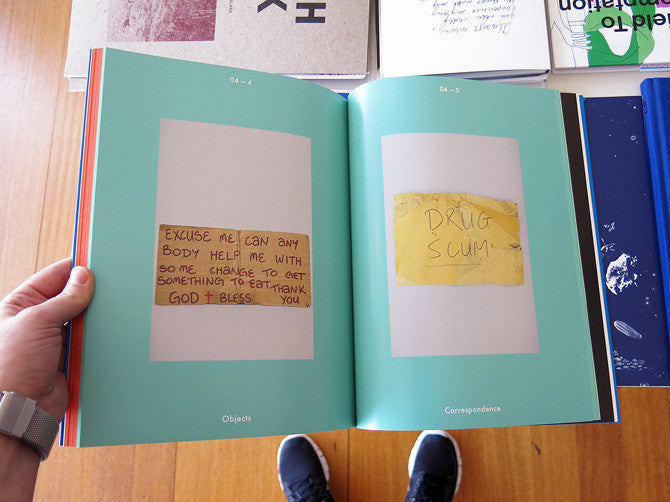 H
K
Always
Yield To
Temptation
04 – 4
04 – 5
EXCUSE ME CAN ANY
BODY HELP ME WITH
SOME CHANGE TO GET
SOMETHING TO EAT THANK
GOD † BLESS YOU
DRUG
SCUM
Objects
Correspondence